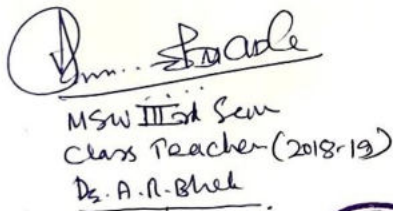 MSW IIIrd Sem
Class Teacher (2018-19)
Dr. A.R.